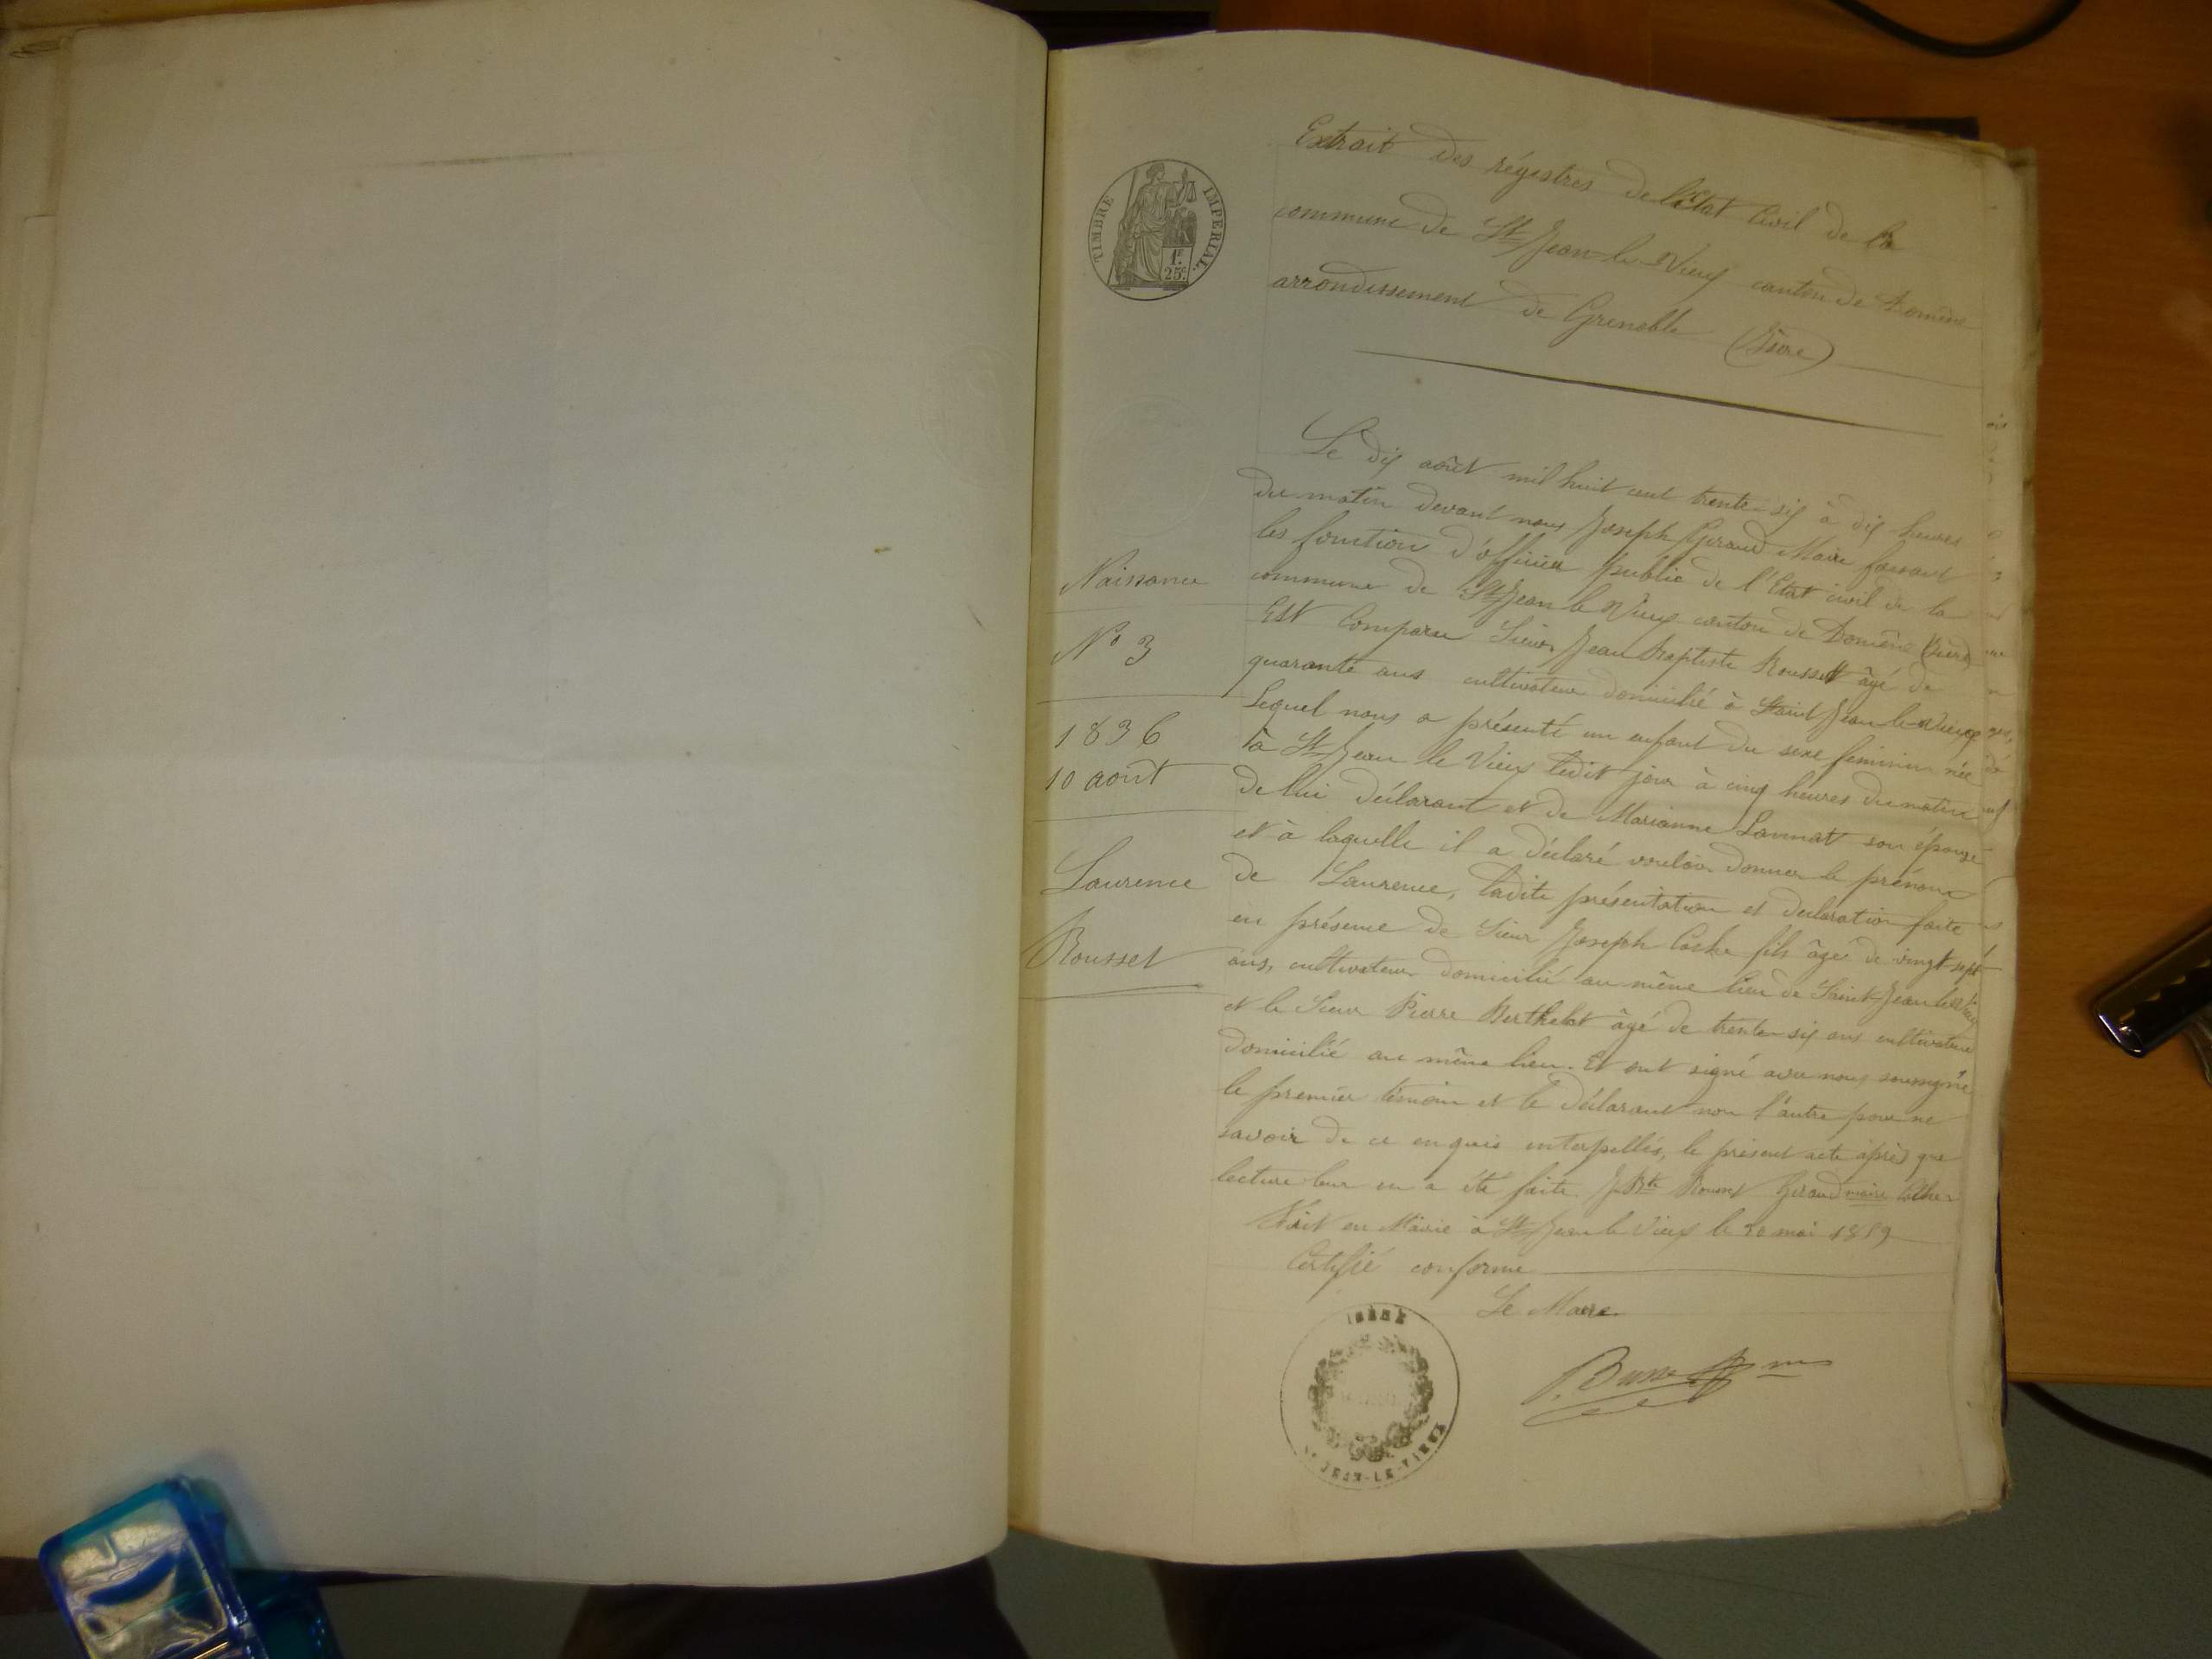 TIMBRE IMPERIAL.
1F.
25c.
Extrait des régistres de l'Etat Civil de la
commune de St Jean le Vieux canton de Domène
arrondissement de Grenoble (Isère)
Naissance
No 3
1836
10 août
Laurence
Rousset
Le dix août mil huit cent trente-six à dix heures
du matin devant nous Joseph Giraud Maire faisant
les fonction d'officier public de l'Etat civil de la
commune de St Jean le Vieux canton de Domène (Isère)
Est Comparu Sieur Jean Baptiste Rousset âgé de
quarante ans cultivateur domicilié à Saint Jean-le-Vieux
Lequel nous a présenté un enfant du sexe féminin née
à St Jean le Vieux ledit jour à cinq heures du matin
de lui déclarant et de Marianne son épouse
et à laquelle il a déclaré vouloir donner le prénom
de Laurence, ladite présentation et déclaration faite
en présence de Sieur Joseph fils âgé de vingt-sept
ans, cultivateur domicilié au même lieu de Saint-Jean le Vieux
et le Sieur Pierre Berthelot âgé de trente-six ans cultivateur
domicilié au même lieu. Et ont signé avec nous soussigné
le premier témoin et le déclarant non l'autre pour ne
savoir de ce enquis interpellés, le présent acte après que
lecture leur en a été faite. J Bte Rousset Giraud maire
Fait en Mairie à St Jean le Vieux le 20 mai 1859
Certifié conforme
Le Maire
ISÈRE
ST JEAN-LE-VIEUX